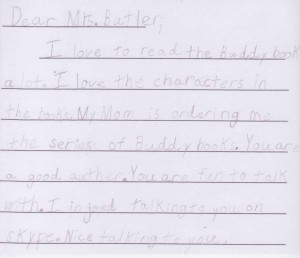 Dear Mrs. Butler,
I love to read the Buddy book
alot. I love the characters in
the books. My Mom is ordering me
the series of Buddy books. You are
a good auther. You are fun to talk
with. I injoed talking to you on
skype. Nice talking to you.